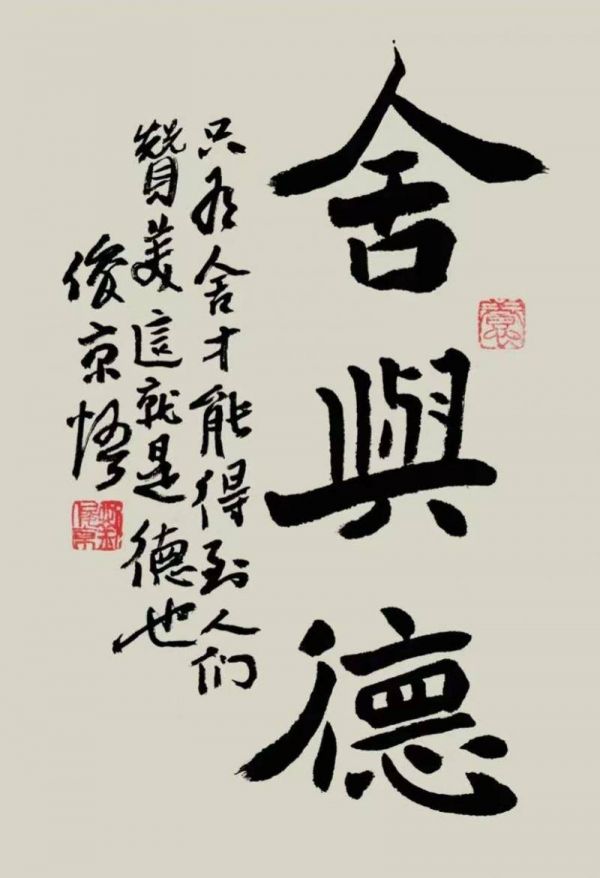 舍與德
只有舍才能得到人们
贊美這就是德也
俊京